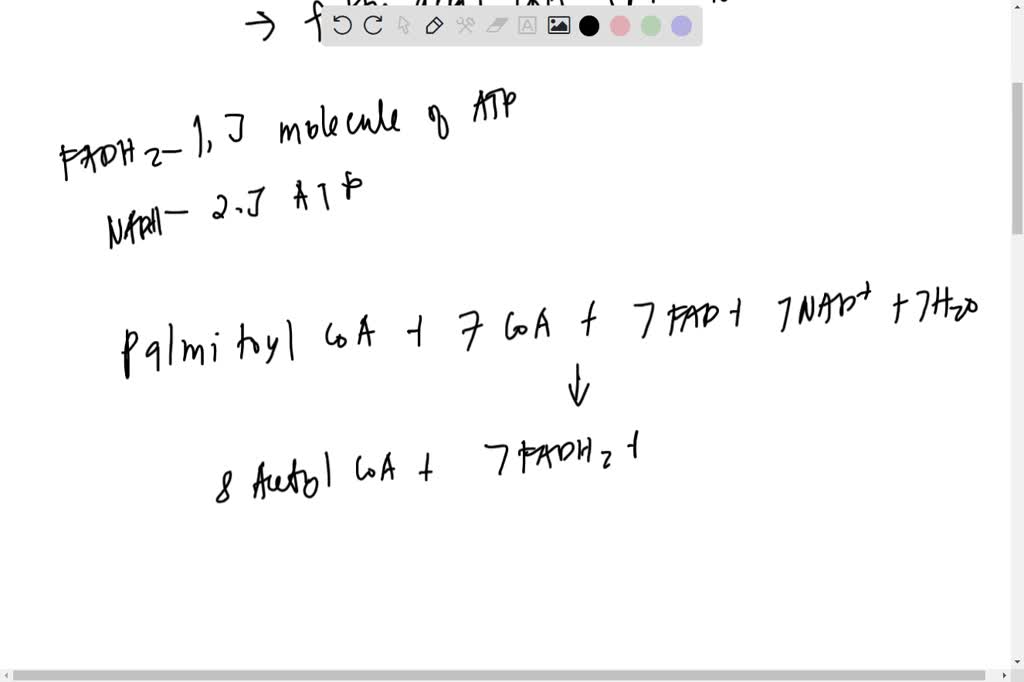 → f
FADH2 - 1.5 molecule of ATP
NADH - 2.5 ATP
Palmitoyl CoA + 7 CoA + 7 FAD + 7 NAD+ + 7 H2O
↓
8 Acetyl CoA + 7 FADH2 +